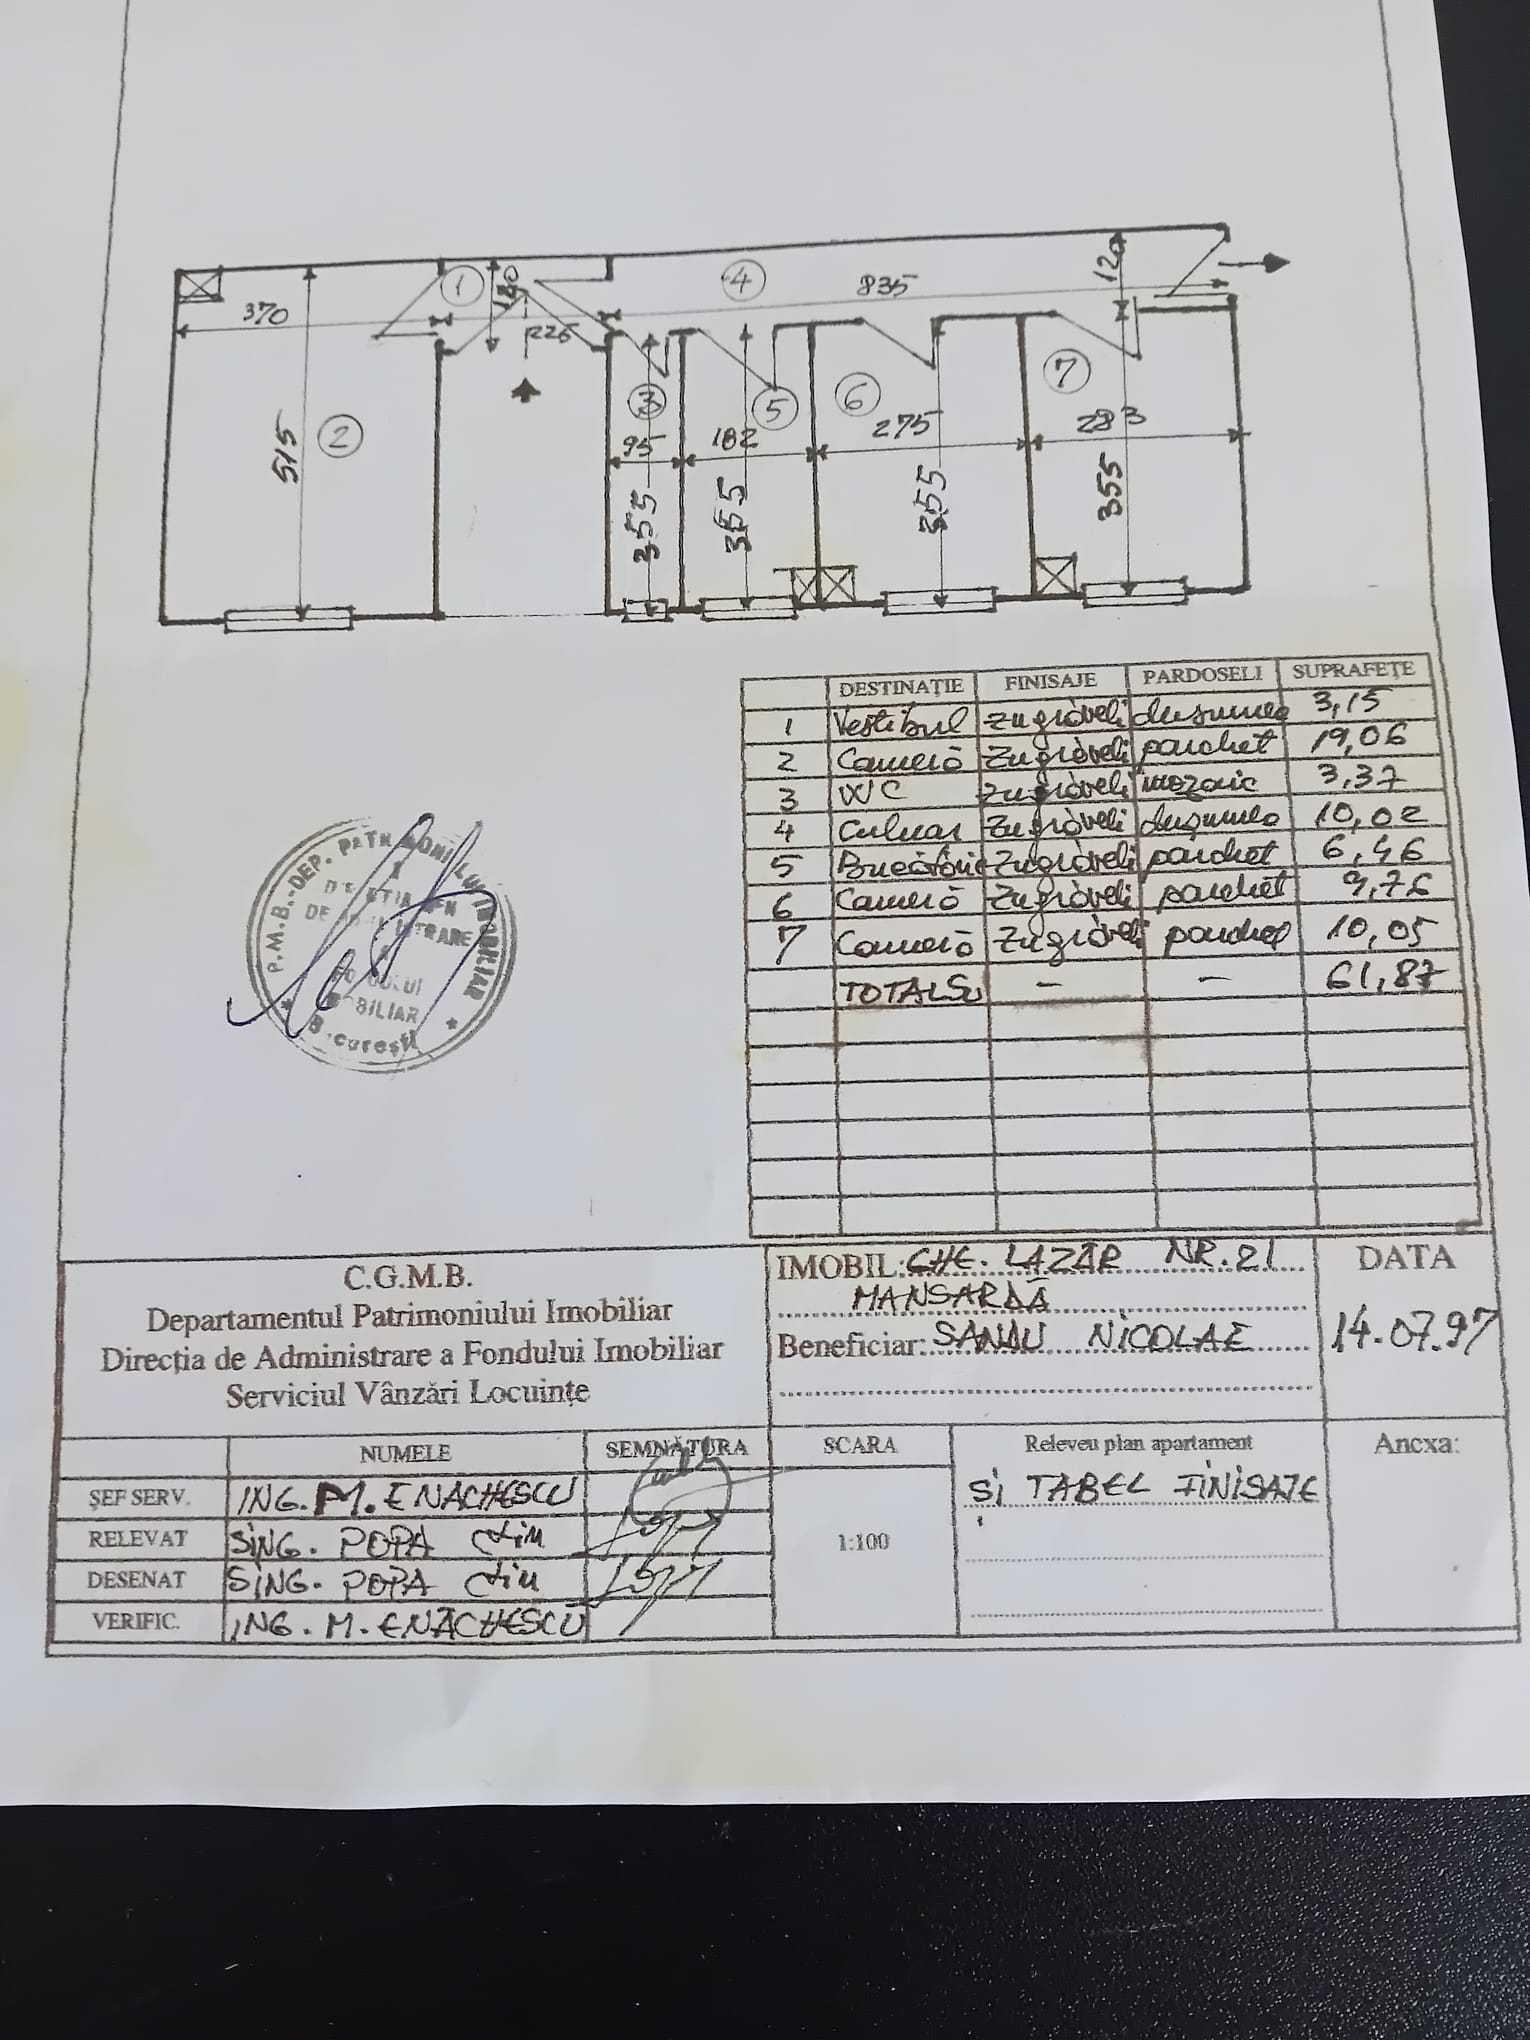 1
4
120
370
180
835
226
3
7
515
2
5
6
95
182
275
283
355
355
355
355
DESTINAȚIE FINISAJE PARDOSELI SUPRAFEȚE
1 Vestibul zugrăveli dușumea 3,15
2 Cameră zugrăveli parchet 19,06
3 WC zugrăveli mozaic 3,37
4 Culoar zugrăveli dușumea 10,02
5 Bucătărie zugrăveli parchet 6,46
6 Cameră zugrăveli parchet 9,76
7 Cameră zugrăveli parchet 10,05
TOTAL SU - - 61,87
P.M.B.-DEP. PATRIMONIULUI IMOBILIAR
DE ADMINISTRARE
București
C.G.M.B.
Departamentul Patrimoniului Imobiliar
Direcția de Administrare a Fondului Imobiliar
Serviciul Vânzări Locuințe
IMOBIL: GHE. LAZĂR NR. 21
MANSARDĂ
Beneficiar: SANDU NICOLAE
DATA
14.07.97
NUMELE SEMNĂTURA SCARA Releveu plan apartament Anexa:
ȘEF SERV. ING. M. ENACHESCU
RELEVAT SING. POPA
DESENAT SING. POPA
VERIFIC. ING. M. ENACHESCU
1:100
ȘI TABEL FINISAJE